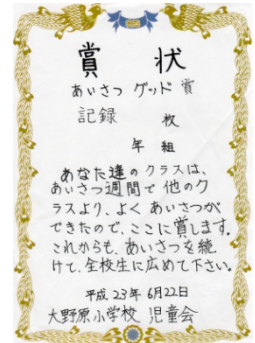 賞状
あいさつ グッド 賞
記録　　枚
年 組
あなた達のクラスは、
あいさつ週間で他のク
ラスより、よく あいさつが
できたので、ここに賞します。
これからも、あいさつを続
けて、全校生に広めて下さい。
平成23年 6月22日
大野原小学校 児童会